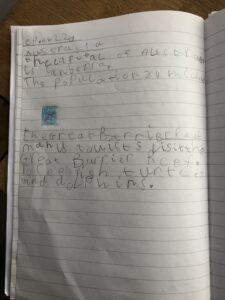 Australia
the caputal of Austra
is canberra.
The population 24 million
the Great Barrier Reef
manys towists visit the
Great Barrier Reef.
to see fish turtles
and dolphins.